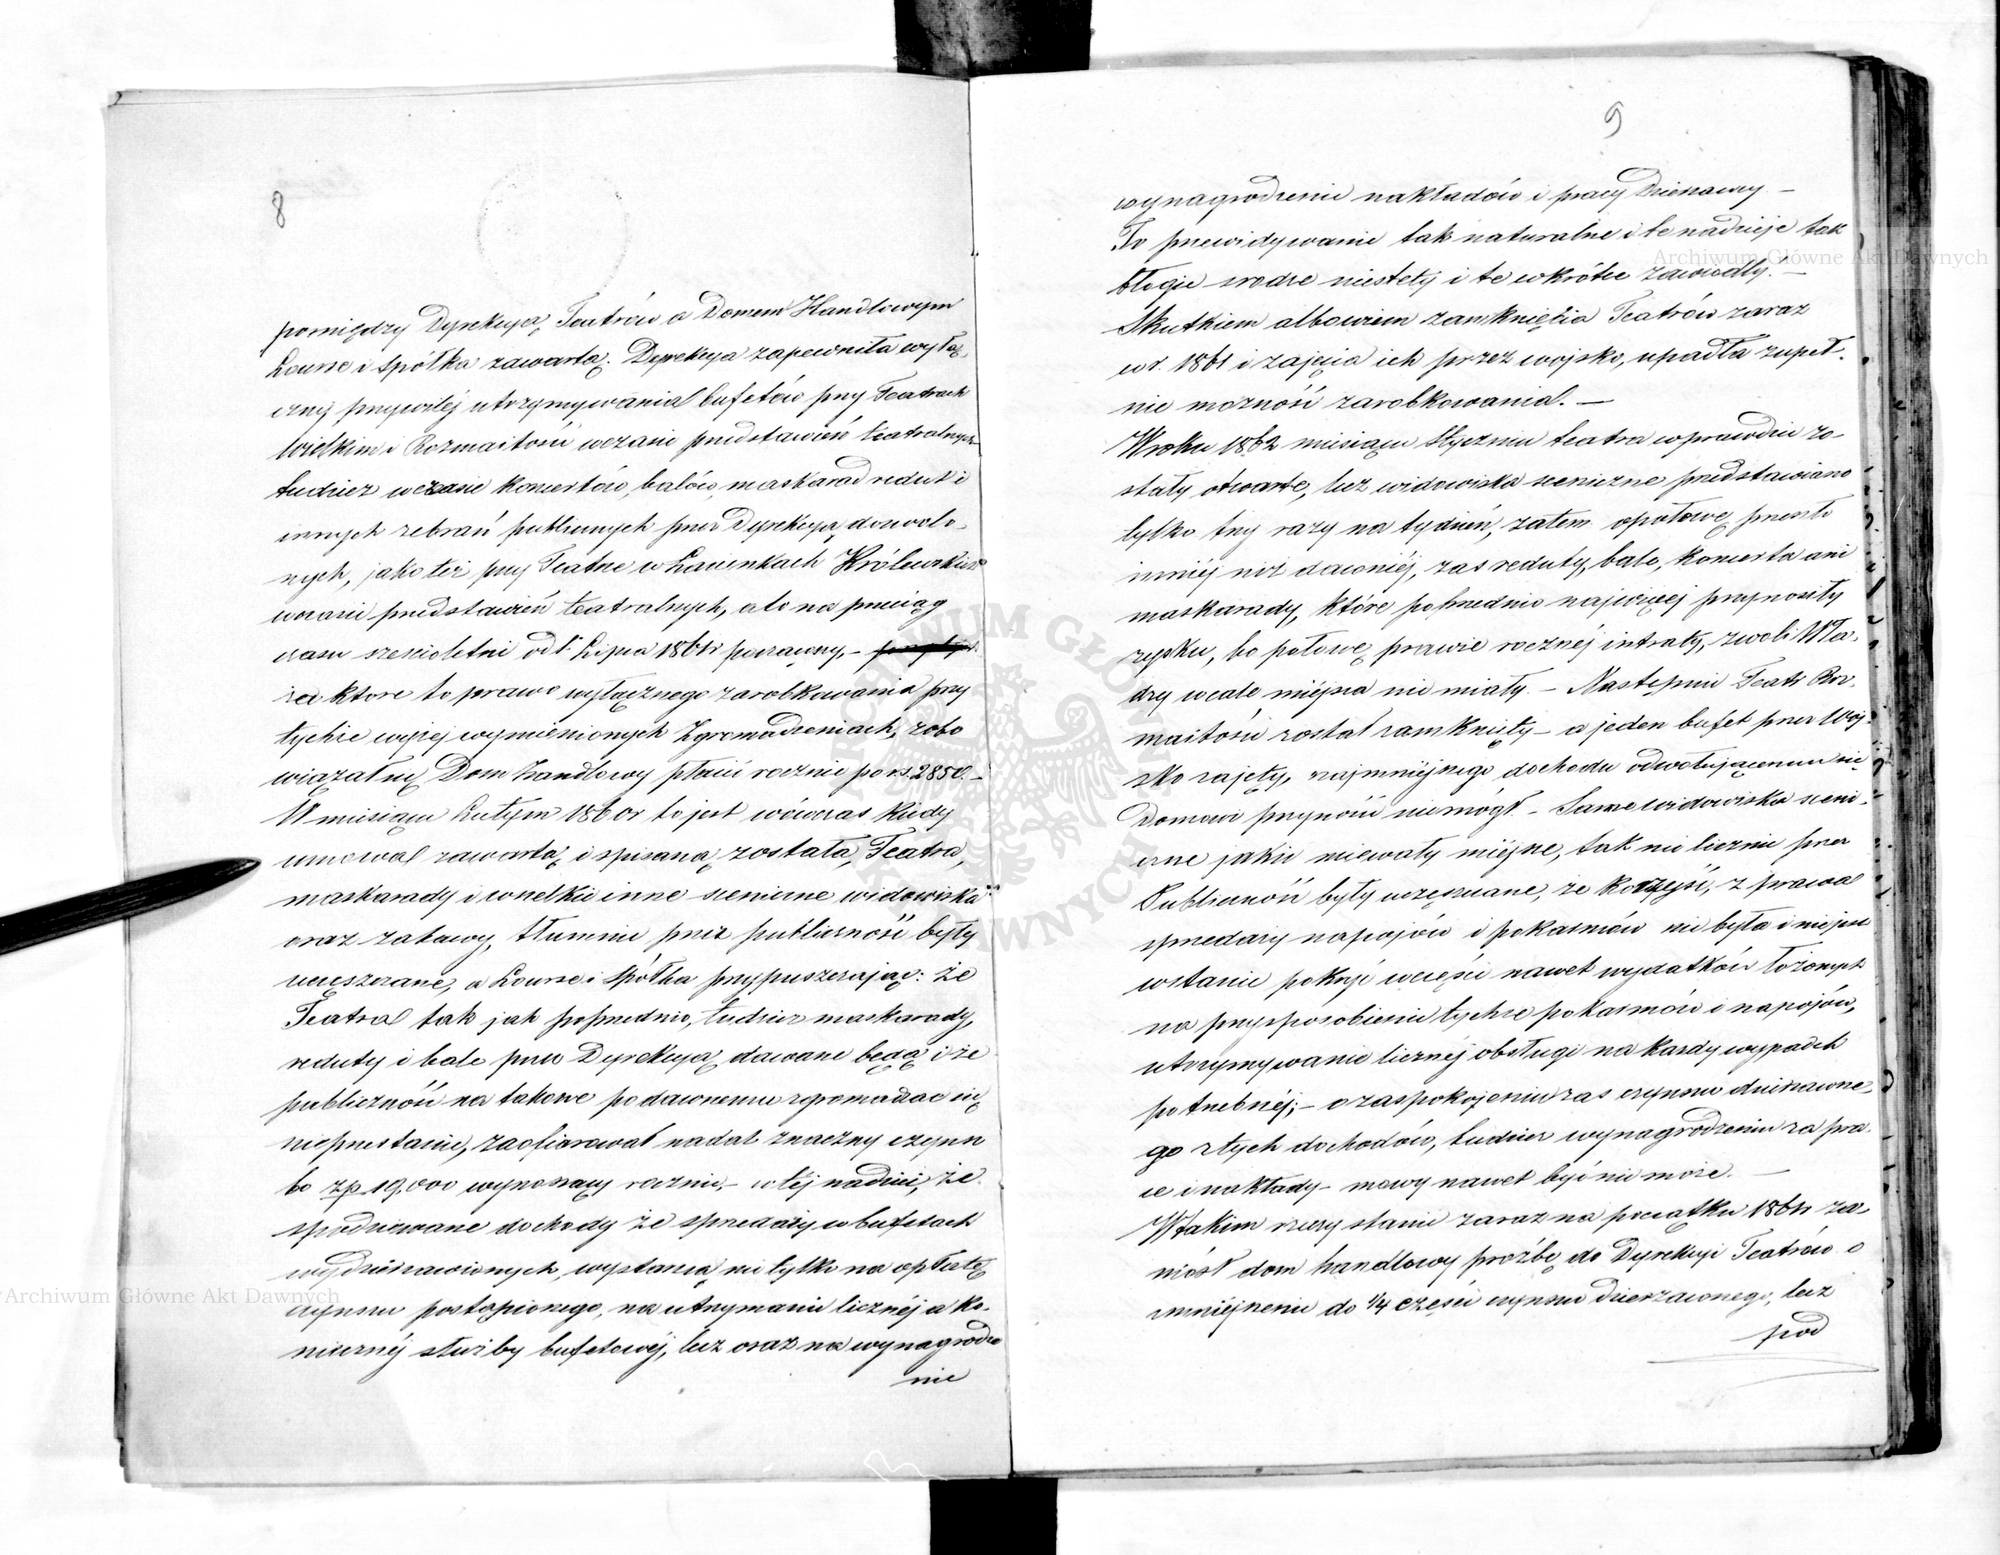 8
pomiędzy Dyrekcyą Teatrów a Domem Handlowym
Lourse i Spółka zawartą. Dyrekcya zapewniła wyłą-
czny przywilej utrzymywania bufetów przy Teatrach
Wielkim i Rozmaitości wczasie przedstawień teatralnych
tudzież wczasie koncertów, balów, maskarad redut i
innych zebrań publicznych przez Dyrekcyą dozwolo-
nych, jako też przy Teatrze w Łazienkach Królewskich
wczasie przedstawień teatralnych, a to na przeciąg
czasu sześcioletni od 1 Lipca 1861r począwszy, –
za które to prawo wyłącznego zarobkowania przy
tychże wyżej wymienionych Zgromadzeniach, zobo
wiązał się Dom handlowy płacić rocznie po rs. 2850. –
W miesiącu Lutym 1860r to jest wówczas kiedy
umowa zawartą i spisaną została, Teatra,
maskarady i wszelkie inne sceniczne widowiska
oraz zabawy, tłumnie przez publiczność były
uczęszczane, a Lourse i Spółka przypuszczając: że
Teatra tak jak poprzednio, tudzież maskarady,
reduty i bale przez Dyrekcyą dawane będą i że
publiczność na takowe po dawnemu zgromadzać się
nieprzestanie, zaofiarował nadal znaczny czynsz
bo zp 19,000 wynoszący rocznie, – w tej nadziei, że
spodziewane dochody ze sprzedaży w bufetach
wydzierżawionych, wystarczą nie tylko na opłatę
czynszu postąpionego, na utrzymanie licznéj a ko-
niecznéj służby bufetowéj, lecz oraz na wynagrodze
nie
9
wynagrodzenie nakładów i pracy Dzierżawcy. –
To przewidywanie tak naturalne i te nadzieje tak
błogie srodze niestety i te wkrótce zawiodły. –
Skutkiem albowiem zamknięcia Teatrów zaraz
w r. 1861 i zajęcia ich przez wojsko, upadła zupeł-
nie możność zarobkowania. –
W roku 1862 miesiącu Styczniu teatra wprawdzie zo-
stały otwarte, lecz widowiska sceniczne przedstawiano
tylko trzy razy na tydzień, zatem o połowę przeszło
mniéj niż dawniéj, zaś reduty, bale, koncerta ani
maskarady, które poprzednio najwięcej przynosiły
zysku, bo połowę prawie rocznéj intraty, zwoli Wła-
dzy wcale miejsca nie miały. – Następnie Teatr Roz-
maitości został zamknięty – a jeden bufet przez Woj-
sko zajęty, najmniejszego dochodu odwołującemu się
Domowi przynosić nie mógł. – Same widowiska sceni-
czne jakie miewały miejsce, tak nie licznie przez
Publiczność były uczęszczane, że korzyść, z prawa
sprzedaży napojów i pokarmów nie była i niejest
wstanie pokryć wczęści nawet wydatków łożonych
na przysposobienie tychże pokarmów i napojów,
utrzymywanie licznéj obsługi na każdy wypadek
potrzebnéj; – o zaspokojeniu zaś czynszu dzierżawne-
go z tych dochodów, tudzież wynagrodzeniu za pra-
ce i nakłady – mowy nawet być nie może. –
W takim rzeczy stanie zaraz na początku 1861r za-
niósł dom handlowy prośbę do Dyrekcyi Teatrów o
zmniéjszenie do 1/4 części czynszu dzierżawnego, lecz
pod
Archiwum Główne Akt Dawnych
Archiwum Główne Akt Dawnych
ARCHIWUM GŁÓWNE AKT DAWNYCH